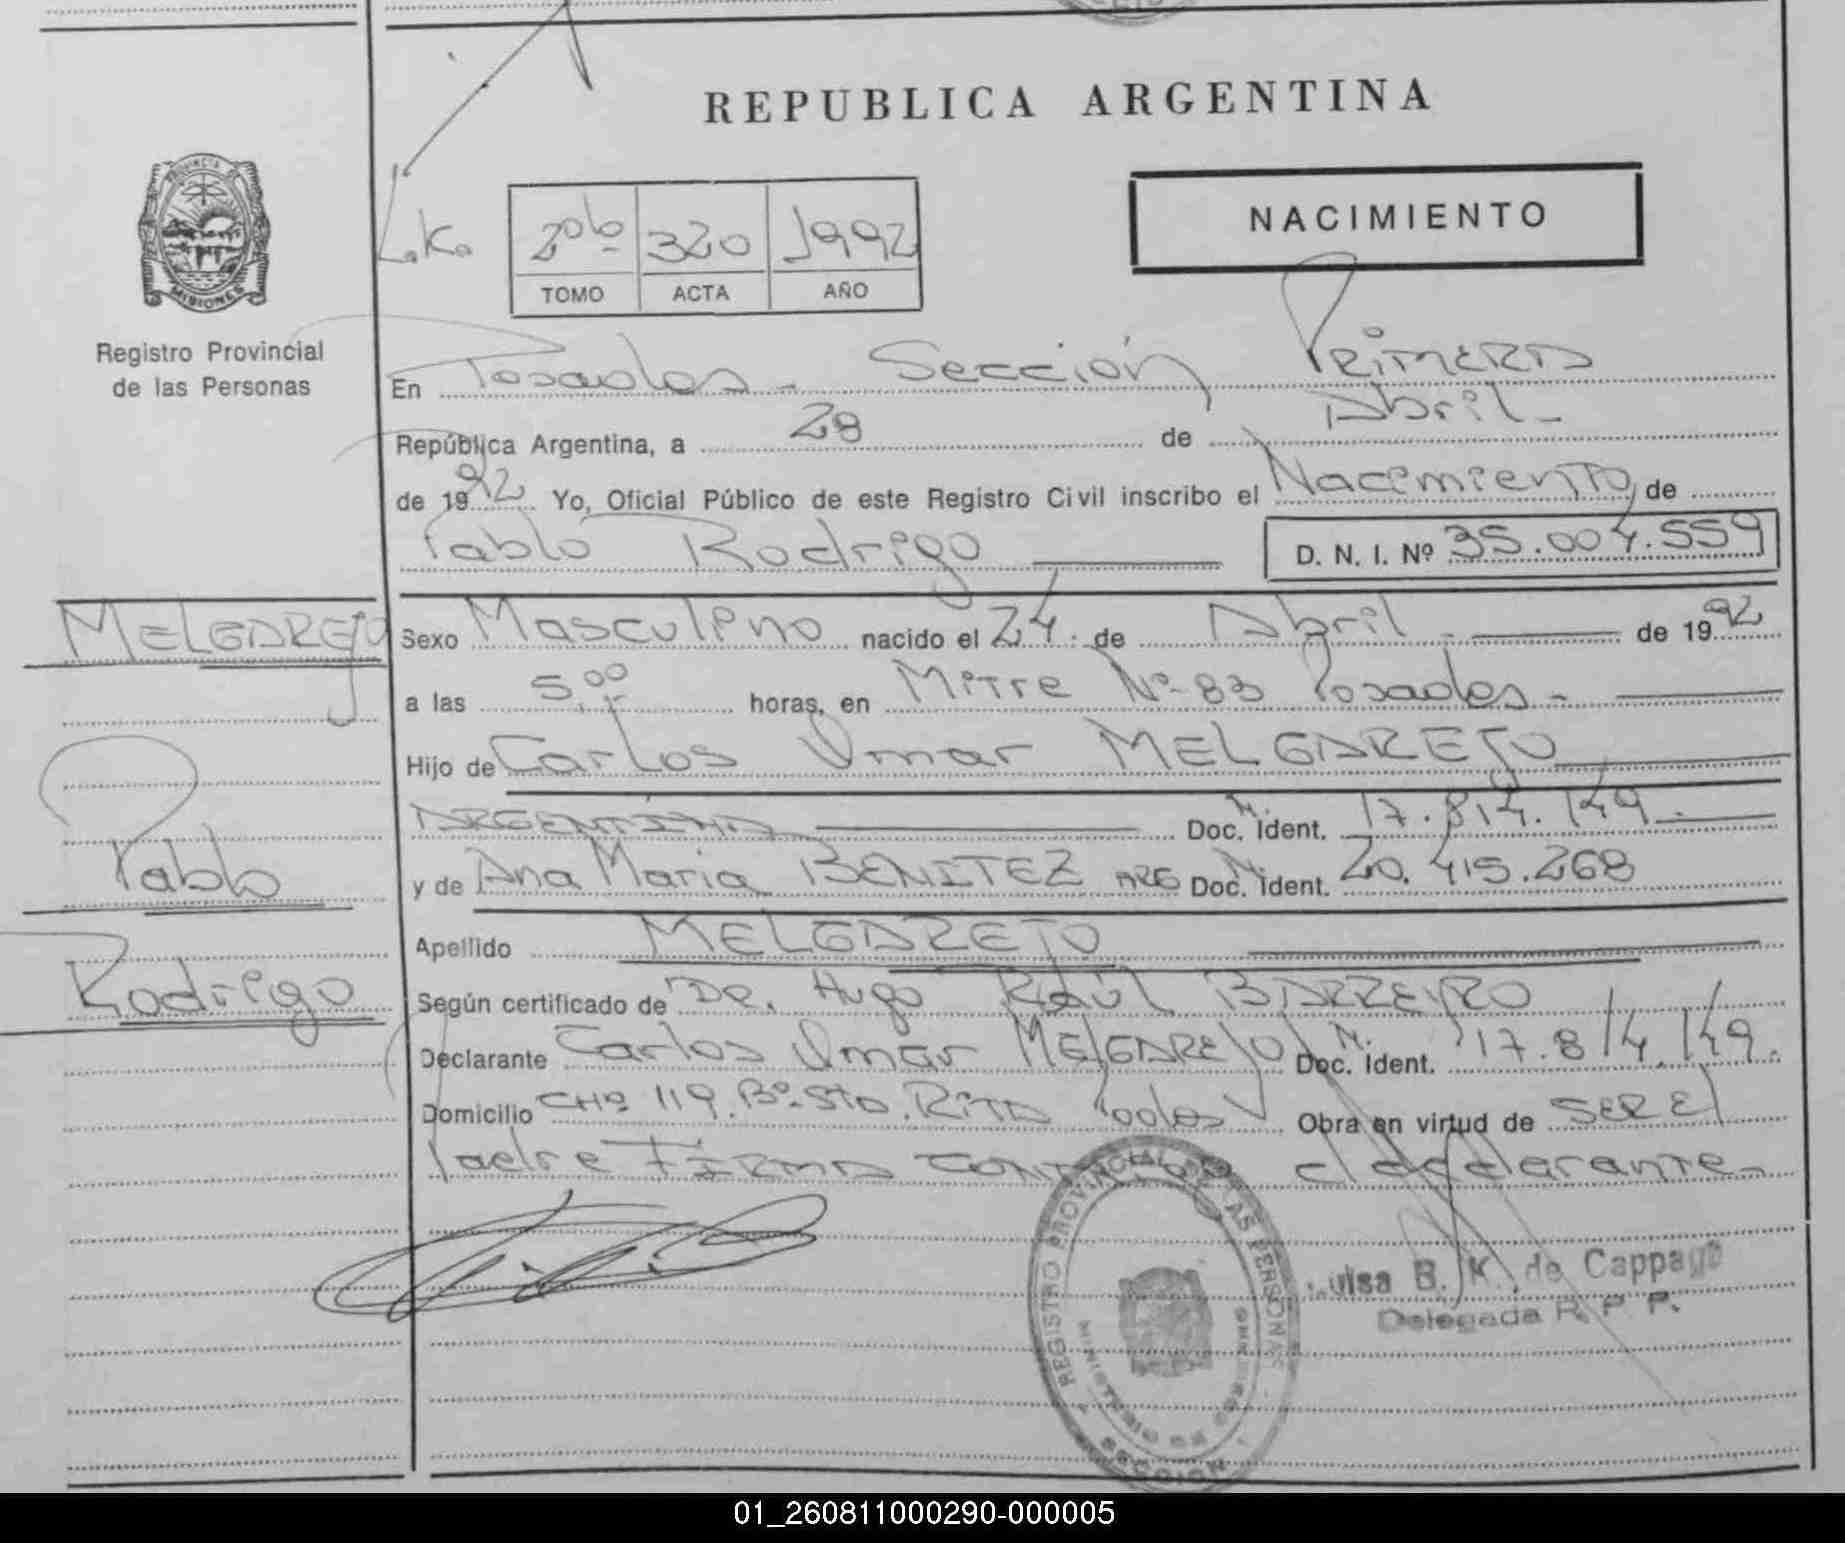 REPUBLICA ARGENTINA
PROVINCIA DE
MISIONES
Registro Provincial
de las Personas
L.K.
2º b 320 1992
TOMO ACTA AÑO
NACIMIENTO
En Posadas - Sección Primera
República Argentina, a 28 de Abril -
de 1992 Yo, Oficial Público de este Registro Civil inscribo el Nacimiento de
Pablo Rodrigo D. N. I. Nº 35.004.559
MELGAREJO
Pablo
Rodrigo
Sexo Masculino nacido el 24 de Abril - de 1992
a las 5,00 horas, en Mitre Nº 83 Posadas -
Hijo de Carlos Omar MELGAREJO
ARGENTINA Doc. Ident. 17.814.149 -
y de Ana Maria BENITEZ ARG Doc. Ident. 20.415.268
Apellido MELGAREJO
Según certificado de Dr. Hugo Raúl BARREYRO
Declarante Carlos Omar MELGAREJO Doc. Ident. 17.814.149.
Domicilio CHª 119. Bº Sta. Rita Pdas Obra en virtud de SER El
Padre FIRMA el declarante -
REGISTRO PROVINCIAL DE LAS PERSONAS
MINISTERIO DE GOBIERNO
SECCION
Luisa B. K. de Cappago
Delegada R. P. P.
01_260811000290-000005